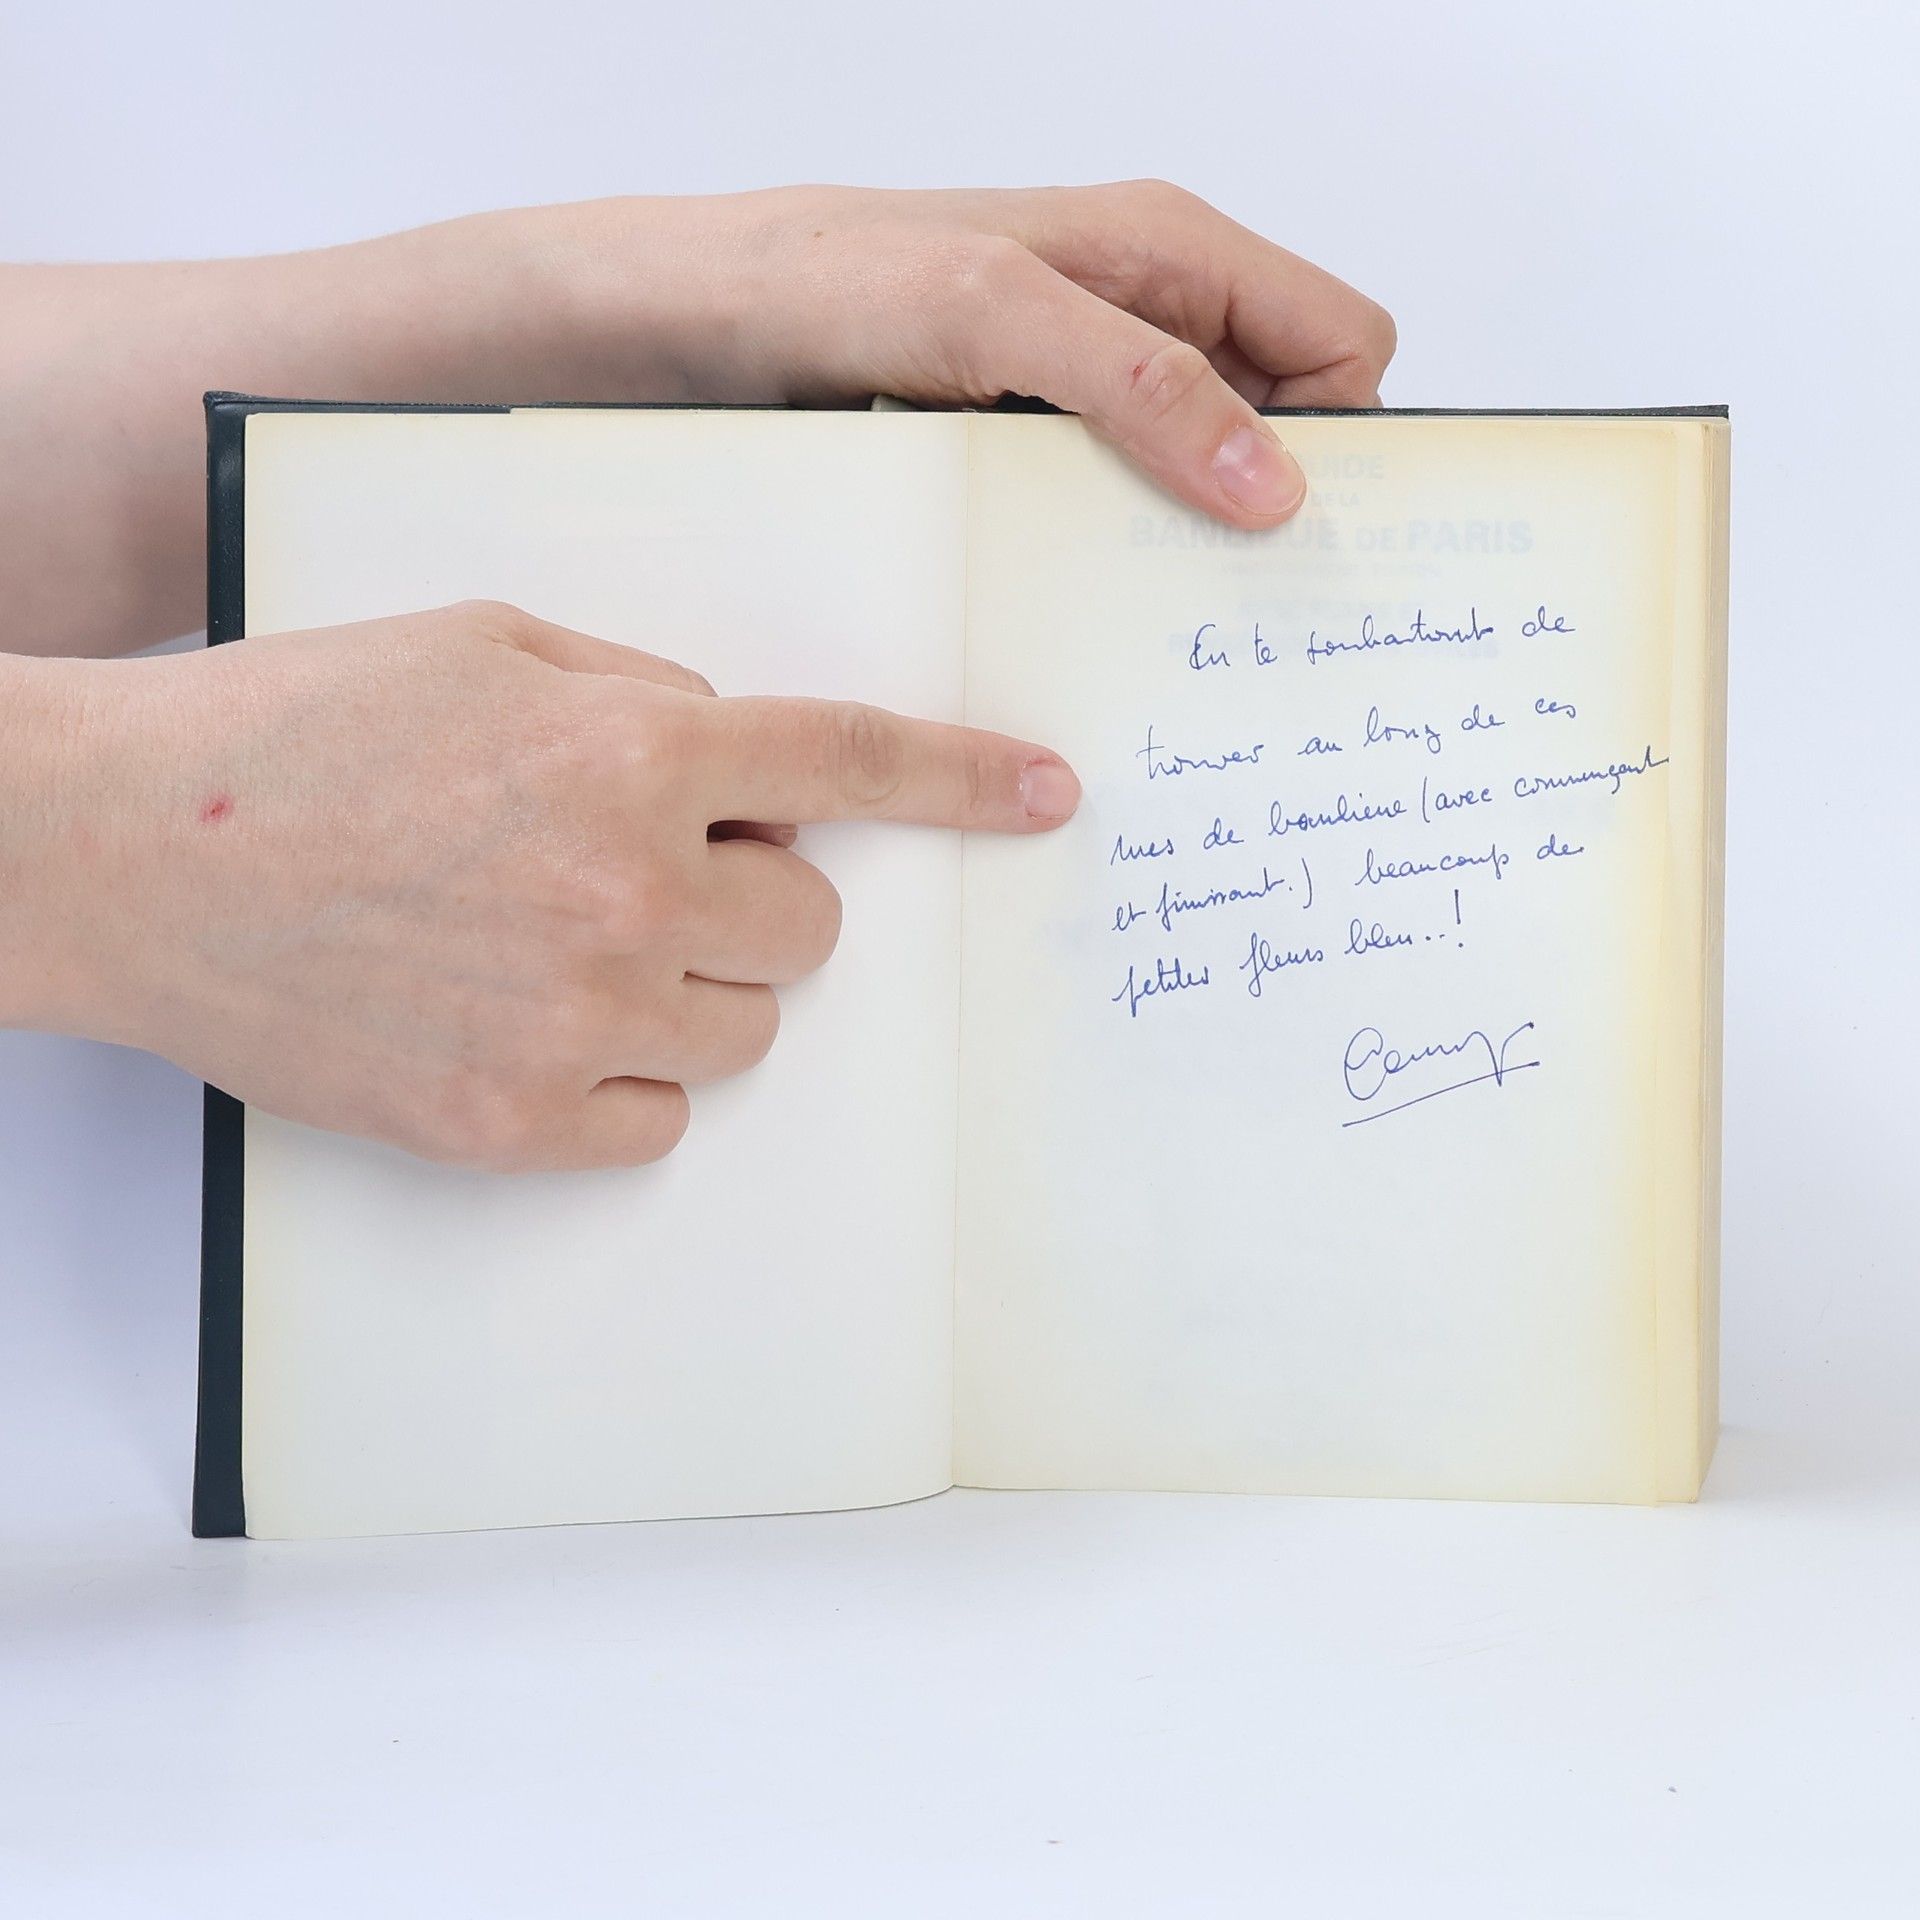 GUIDE
DE LA
BANLIEUE DE PARIS
En te souhaitant de
trouver au long de ces
rues de banlieue (avec commençant
et finissant.) beaucoup de
petites fleurs bleu..!